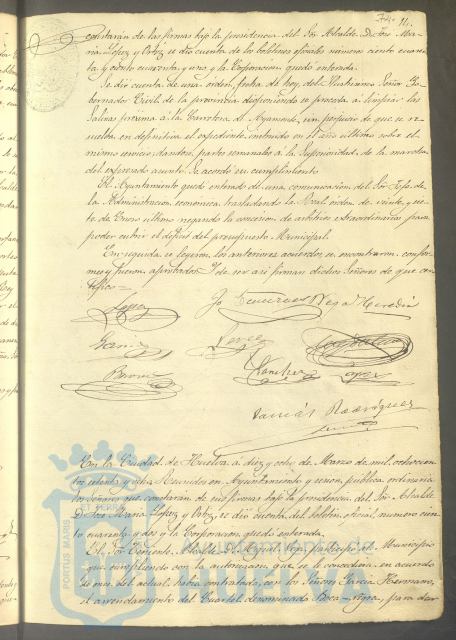 74. 14.
constarán de las firmas bajo la presidencia del Sor. Alcalde D. José Ma-
ría López y Ortiz se dió cuenta de los boletines oficiales números ciento cuaren-
ta y ciento cuarenta y uno y la Corporación quedó enterada.
Se dió cuenta de una orden, fecha de hoy, del Ilustrísimo Señor Go-
bernador Civil de la provincia disponiendo se proceda a limpiar las
Salinas próxima á la Carretera de Ayamonte, sin perjuicio de que se re-
suelva en definitiva el espediente instruido en el año último sobre el
mismo servicio dandose partes semanales á la Superioridad, de la marcha
del espresado asunto. Se acordó su cumplimiento
El Ayuntamiento quedó enterado de una comunicación del Sor. Jefe de
la Administración económica trasladando la Real orden de veinte y sie-
te de Enero último negando la concesion de arbitrios extraordinarios para
poder cubrir el déficit del presupuesto Municipal.
En seguida se leyeron los anteriores acuerdos, se encontraron confor-
mes y fueron aprobados. Y de ser así firman dichos Señores de que cer-
tifico=
López
Vega Heredia
Pérez
Sanchez
López
Rodríguez
En la Ciudad de Huelva á diez y ocho de Marzo de mil ochocien
tos setenta y ocho Reunidos en Ayuntamiento y sesion pública ordinaria
los Señores que constarán de sus firmas bajo la presidencia del Sor. Alcalde
D. José María López y Ortiz, se dió cuenta del boletin oficial número cien
to cuarenta y dos y la Corporación quedó enterada.
El Sor. Teniente Alcalde participó al Municipio
que cumpliendo con la autorizacion que se le concediera en acuerdo
de once del actual había contratado, con los Señores García Hermanos,
el arrendamiento del Cuartel denominado Boca-Negra, para dar
PORTUS MARIS
ET TERRÆ
Ayuntamiento de